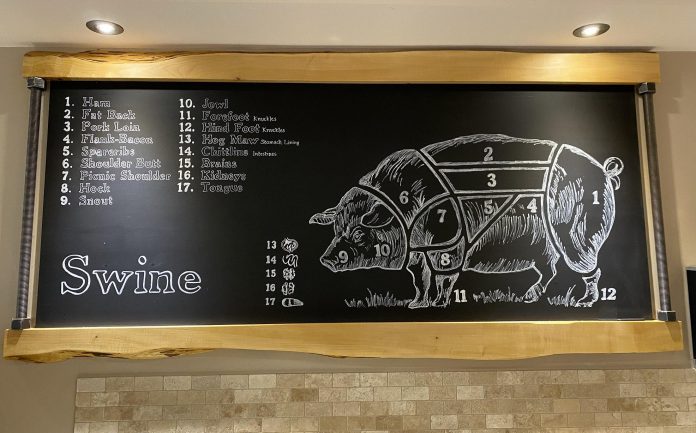 1. Ham
2. Fat Back
3. Pork Loin
4. Flank-Bacon
5. Spareribs
6. Shoulder Butt
7. Picnic Shoulder
8. Hock
9. Snout
10. Jowl
11. Forefoot Knuckles
12. Hind Foot Knuckles
13. Hog Maw Stomach Lining
14. Chittlins Intestines
15. Brains
16. Kidneys
17. Tongue
Swine
13
14
15
16
17
1
2
3
4
5
6
7
8
9
10
11
12